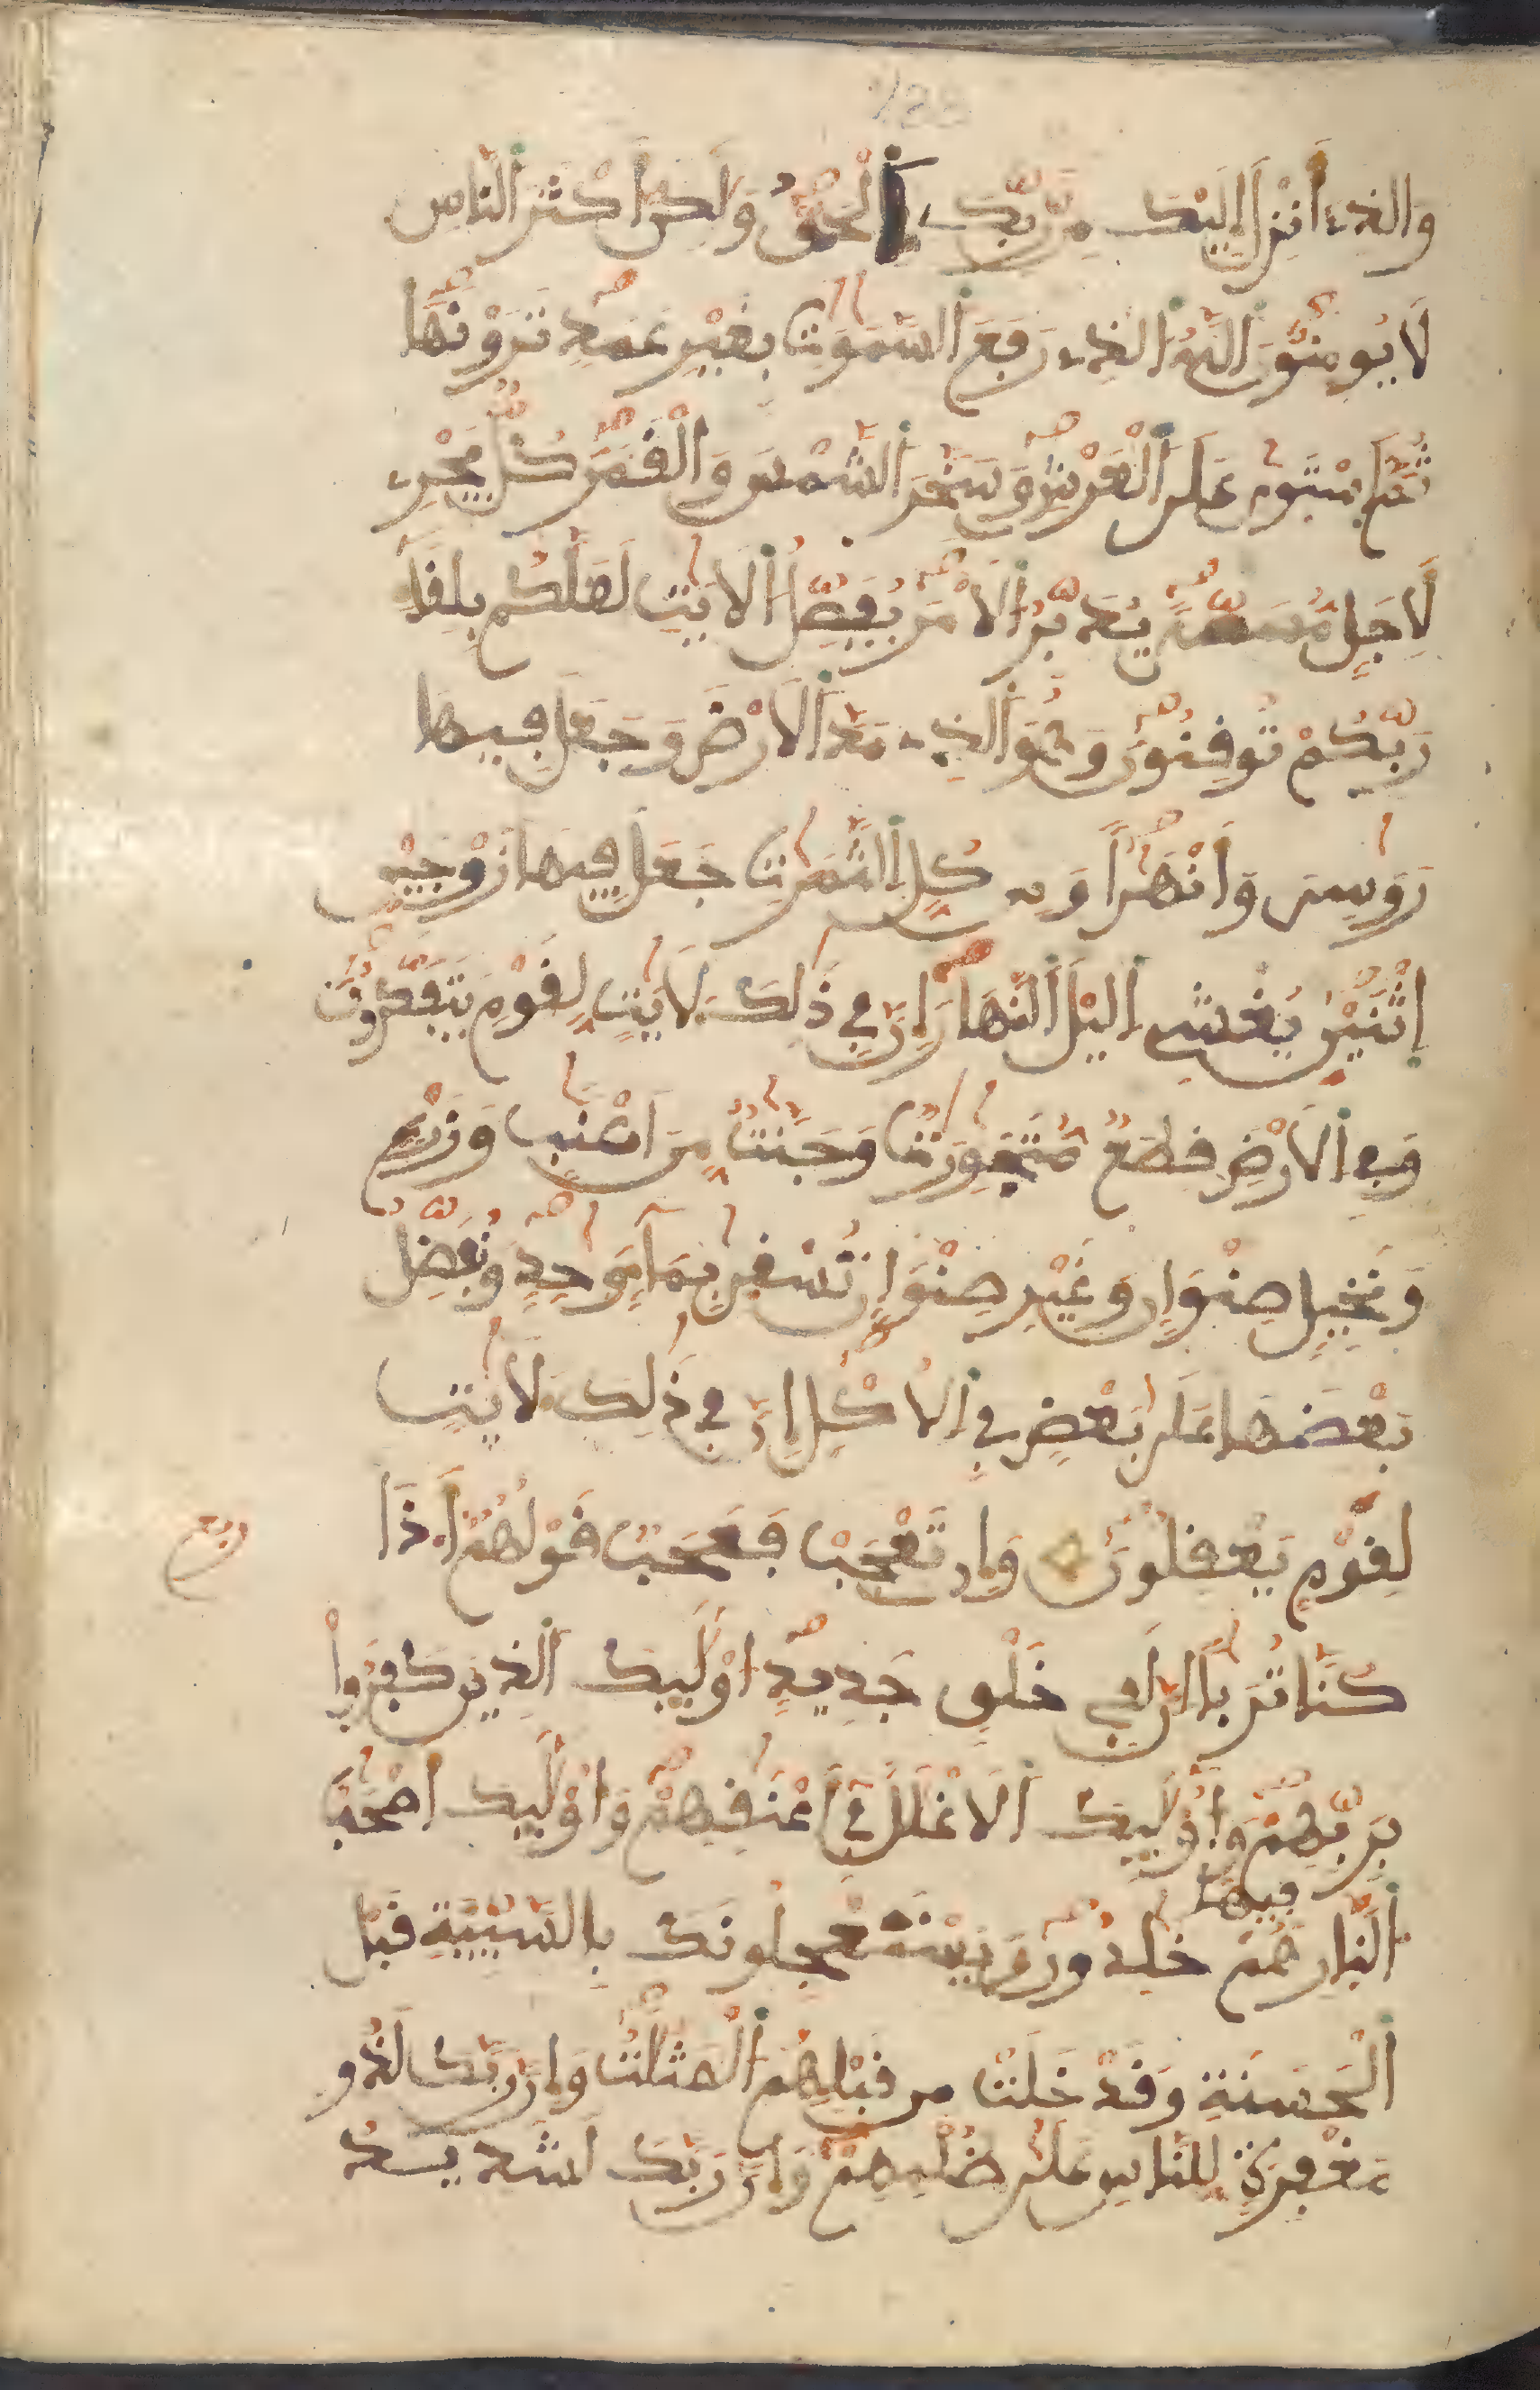 وَالذِے أُنزِلَ إِلَيْكَ مِن رَّبِّكَ اَ۬لْحَقُّ وَلَٰكِنَّ أَكْثَرَ اَ۬لنَّاسِ
لَا يُومِنُونَ اَ۬للَّهُ اُ۬لذِے رَفَعَ اَ۬لسَّمَٰوَٰتِ بِغَيْرِ عَمَدٍ تَرَوْنَهَا
ثُمَّ اَ۪سْتَوٰ۪ي عَلَي اَ۬لْعَرْشِ وَسَخَّرَ اَ۬لشَّمْسَ وَالْقَمَرَ كُلٌّ يَجْرِے
لِأَجَلٍ مُّسَمّيٗ يُدَبِّرُ اُ۬لَامْرَ يُفَصِّلُ اُ۬لَايَٰتِ لَعَلَّكُم بِلِقَآءِ
رَبِّكُمْ تُوقِنُونَ وَهُوَ اَ۬لذِے مَدَّ اَ۬لَارْضَ وَجَعَلَ فِيهَا
رَوَٰسِيَ وَأَنْهَٰراٗ وَمِن كُلِّ اِ۬لثَّمَرَٰتِ جَعَلَ فِيهَا زَوْجَيْنِ
اِ۪ثْنَيْنِ يُغْشِے اِ۬ليْلَ اَ۬لنَّهَارَ إِنَّ فِے ذَٰلِكَ لَأٓيَٰتٖ لِّقَوْمٖ يَتَفَكَّرُونَ
وَفِے اِ۬لَارْضِ قِطَعٞ مُّتَجَٰوِرَٰتٞ وَجَنَّٰتٞ مِّنَ اَعْنَٰبٖ وَزَرْعٖ
وَنَخِيلٖ صِنْوَانٖ وَغَيْرِ صِنْوَانٖ تُسْق۪يٰ بِمَآءٖ وَٰحِدٖ وَنُفَضِّلُ
بَعْضَهَا عَلَيٰ بَعْضٖ فِے اِ۬لُاكْلِ إِنَّ فِے ذَٰلِكَ لَأٓيَٰتٖ
لِّقَوْمٖ يَعْقِلُونَ وَإِن تَعْجَبْ فَعَجَبٞ قَوْلُهُمُۥٓ أَ.ذَا
ربع
كُنَّا تُرَٰباً اِنَّا لَفِے خَلْقٖ جَدِيدٍ اُوْلَٰٓئِكَ اَ۬لذِينَ كَفَرُواْ
بِرَبِّهِمْ وَأُوْلَٰٓئِكَ اَ۬لَاغْلَٰلُ فِےٓ أَعْنَٰقِهِمْ وَأُوْلَٰٓئِكَ أَصْحَٰبُ
اُ۬لنّ۪ارِ هُمْ فِيهَا خَٰلِدُونَ وَيَسْتَعْجِلُونَكَ بِالسَّيِّئَةِ قَبْلَ
اَ۬لْحَسَنَةِ وَقَدْ خَلَتْ مِن قَبْلِهِمُ اُ۬لْمَثُلَٰتُ وَإِنَّ رَبَّكَ لَذُو
مَغْفِرَةٖ لِّلنَّاسِ عَلَيٰ ظُلْمِهِمْ وَإِنَّ رَبَّكَ لَشَدِيدُ